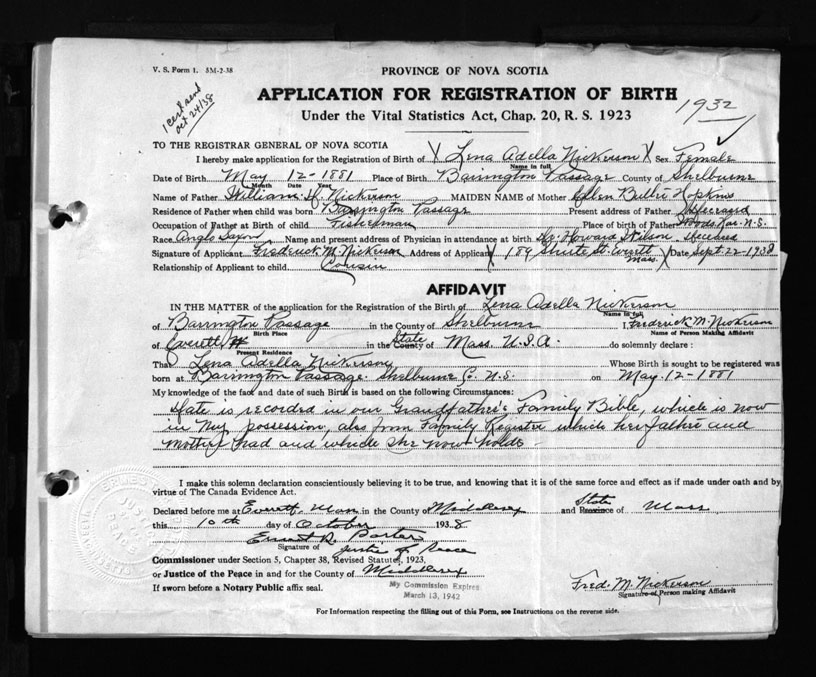 V. S. Form 1. 5M-2-38
PROVINCE OF NOVA SCOTIA
1 Cert send
Oct 24/38
APPLICATION FOR REGISTRATION OF BIRTH
1932
Under the Vital Statistics Act, Chap. 20, R. S. 1923
TO THE REGISTRAR GENERAL OF NOVA SCOTIA
I hereby make application for the Registration of Birth of X Lena Adella Nickerson X Sex Female
Name in full
Date of Birth May 12 - 1881 Place of Birth Barrington Passage County of Shelburne
Month Date Year
Name of Father William H Nickerson MAIDEN NAME of Mother Hopkins
Residence of Father when child was born Barrington Passage Present address of Father Deceased
Occupation of Father at Birth of child Fisherman Place of birth of Father Woods Har. N.S.
Race Anglo Saxon Name and present address of Physician in attendance at birth Dr. Howard Wilson Deceased
Signature of Applicant Fredrick M. Nickerson Address of Applicant X 189 Shute St Everett Mass. X Date Sept 22 - 1938
Relationship of Applicant to child Cousin
AFFIDAVIT
IN THE MATTER of the application for the Registration of the Birth of Lena Adella Nickerson
Name in full
of Barrington Passage in the County of Shelburne I, Frederick M. Nickerson
Birth Place Name of Person Making Affidavit
of Everett in the County of State Mass. U.S.A. do solemnly declare :
Present Residence
That Lena Adella Nickerson Whose Birth is sought to be registered was
born at Barrington Passage Shelburne Co. N.S. on May - 12 - 1881
My knowledge of the fact and date of such Birth is based on the following Circumstances:
Date is recorded in our Grandfather's Family Bible, which is now
in my possession, also from Family Register which her father and
mother had and which she now holds -
I make this solemn declaration conscientiously believing it to be true, and knowing that it is of the same force and effect as if made under oath and by
virtue of The Canada Evidence Act.
Declared before me at Everett, Mass in the County of Middlesex and Province of State Mass
this 10th day of October 1938
Ernest R. Porter
Signature of Justice of Peace
Commissioner under Section 5, Chapter 38, Revised Statutes, 1923,
or Justice of the Peace in and for the County of Middlesex
If sworn before a Notary Public affix seal.
My Commission Expires
March 13, 1942
Fred. M. Nickerson
Signature of Person making Affidavit
For Information respecting the filling out of this Form, see Instructions on the reverse side.